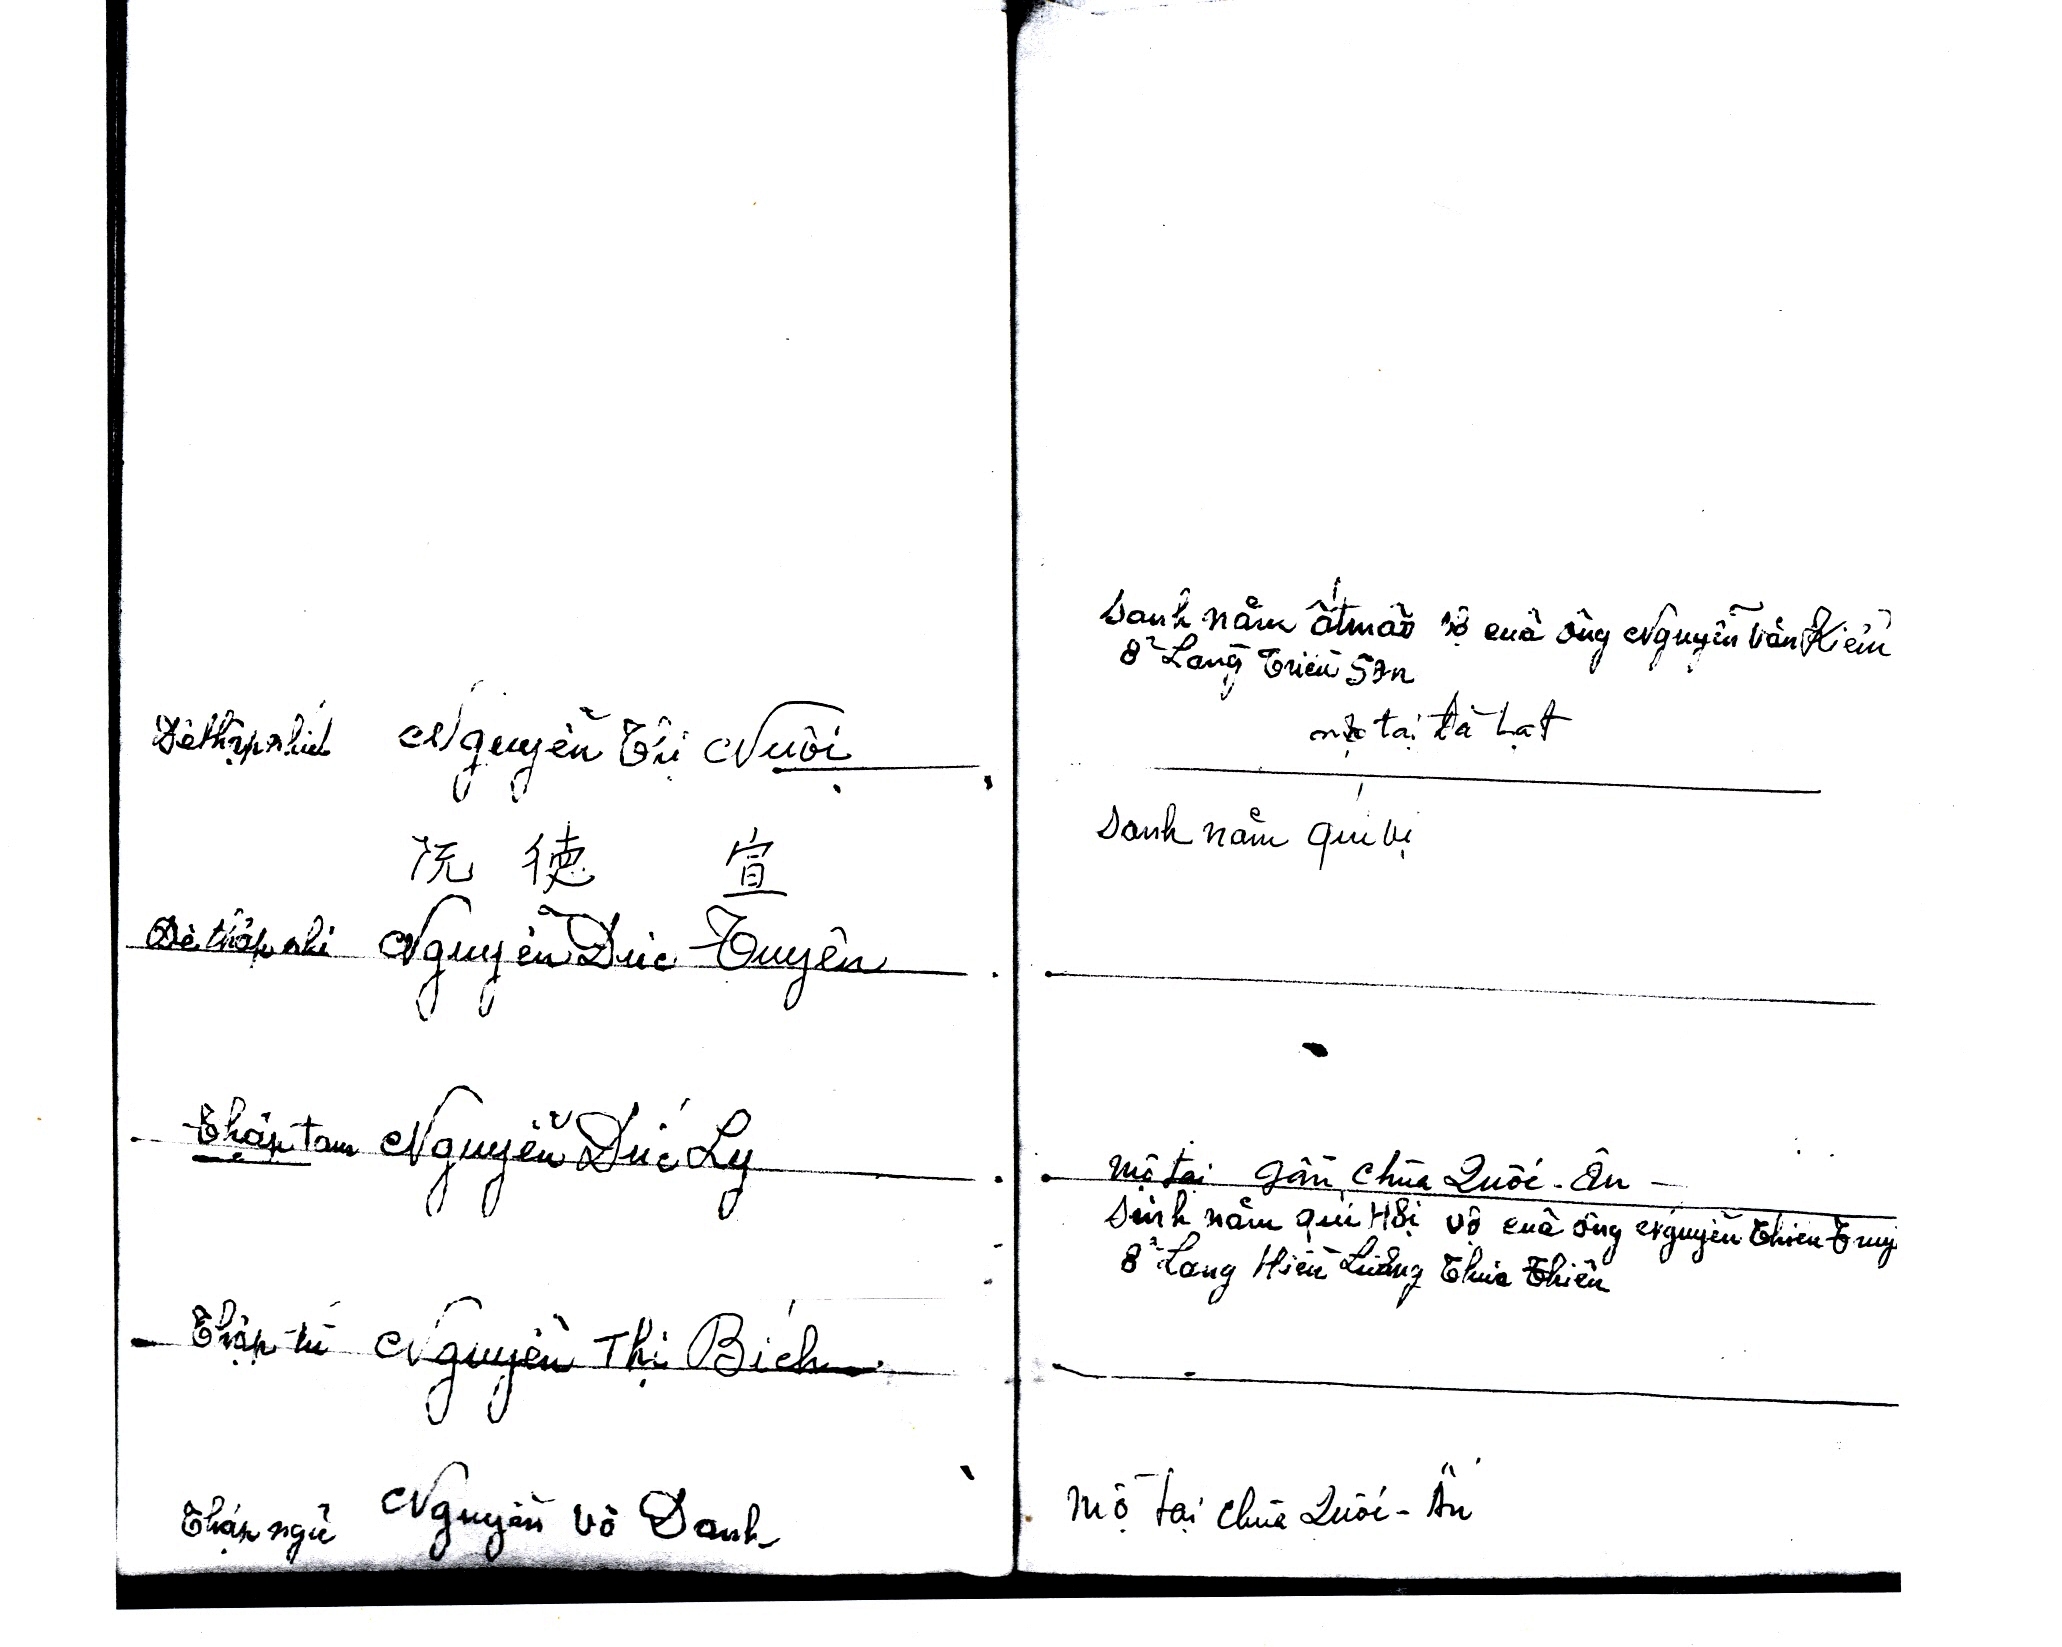 Đệ thập nhứt Nguyễn Thị Nuôi
阮 德 宣
Đệ thập nhị Nguyễn Đức Tuyên
Thập tam Nguyễn Đức Ly
Thập tứ Nguyễn Thị Bích
Thập ngũ Nguyễn Vô Danh
Sanh năm ất mão vợ của ông Nguyễn Văn Kiểm
ở Làng Triều Sơn
mộ tại Đà Lạt
Sanh năm Quí Vị
Mộ tại gần chùa Quốc-Ân
Sinh năm Quí Hợi vợ của ông Nguyễn Thiên
ở Làng Hiền Lương Thừa Thiên
Mộ tại chùa Quốc-Ân